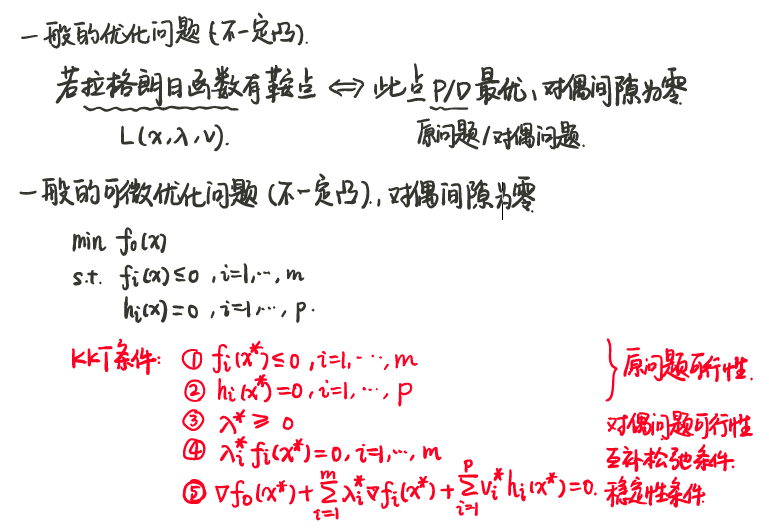 一般的优化问题(不一定凸).
若拉格朗日函数有鞍点 ⇔ 此点P/D最优、对偶间隙为零
L(x,λ,v). 原问题/对偶问题.
一般的可微优化问题(不一定凸)., 对偶间隙为零
min f₀(x)
s.t. fᵢ(x)≤0 , i=1,…, m
hᵢ(x)=0 , i=1,…, p.
KKT条件: ① fᵢ(x*)≤0 , i=1, …, m
② hᵢ(x*)=0, i=1, …, p
原问题可行性.
③ λ* ≥ 0 对偶问题可行性
④ λᵢ* fᵢ(x*)=0, i=1,…, m 互补松弛条件.
⑤ ∇f₀(x*)+∑ᵢ₌₁ᵐ λᵢ*∇fᵢ(x*)+∑ᵢ₌₁ᵖ vᵢ*hᵢ(x*)=0. 稳定性条件.